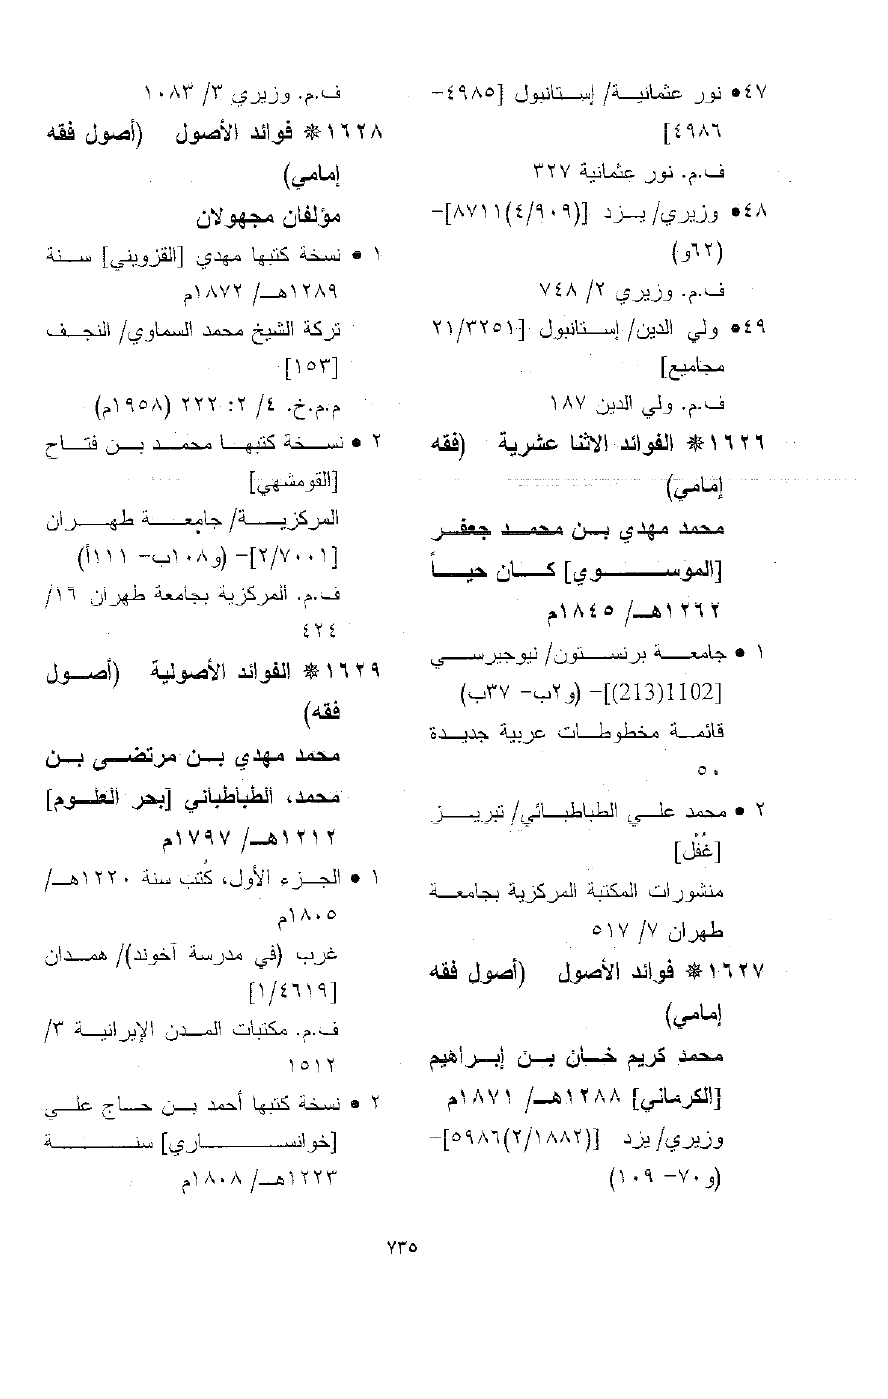 ٤٧• نور عثمانية/ إستانبول [٤٩٨٥-
٤٩٨٦]
ف.م. نور عثمانية ٣٢٧
٤٨• وزيري/ يزد [(٤/٩٠٩)٨٧١١]-
(٦٢و)
ف.م. وزيري ٢/ ٧٤٨
٤٩• ولي الدين/ إستانبول [٢١/٣٢٥١
مجاميع]
ف.م. ولي الدين ١٨٧
١٦٢٦* الفوائد الاثنا عشرية (فقه
إمامي)
محمد مهدي بن محمد جعفر
[الموسوي] كان حياً
١٢٦٢هـ/ ١٨٤٥م
١ • جامعة برنستون/ نيوجيرسي
[1102(213)]- (و٢ب- ٣٧ب)
قائمة مخطوطات عربية جديدة
٥٠
٢ • محمد علي الطباطبائي/ تبريز
[غُفْل]
منشورات المكتبة المركزية بجامعة
طهران ٧/ ٥١٧
١٦٢٧* فوائد الأصول (أصول فقه
إمامي)
محمد كريم خان بن إبراهيم
[الكرماني] ١٢٨٨هـ/ ١٨٧١م
وزيري/ يزد [(٢/١٨٨٢)٥٩٨٦]-
(و٧٠- ١٠٩)
ف.م. وزيري ٣/ ١٠٨٣
١٦٢٨* فوائد الأصول (أصول فقه
إمامي)
مؤلفان مجهولان
١ • نسخة كتبها مهدي [القزويني] سنة
١٢٨٩هـ/ ١٨٧٢م
تركة الشيخ محمد السماوي/ النجف
[١٥٣]
م.م.خ. ٤/ ٢: ٢٢٢ (١٩٥٨م)
٢ • نسخة كتبها محمد بن فتاح
[القومشهي]
المركزية/ جامعة طهران
[٢/٧٠٠١]- (و١٠٨ب- ١١١أ)
ف.م. المركزية بجامعة طهران ١٦/
٤٢٤
١٦٢٩* الفوائد الأصولية (أصول
فقه)
محمد مهدي بن مرتضى بن
محمد، الطباطبائي [بحر العلوم]
١٢١٢هـ/ ١٧٩٧م
١ • الجزء الأول، كُتب سنة ١٢٢٠هـ/
١٨٠٥م
غرب (في مدرسة آخوند)/ همدان
[١/٤٦١٩]
ف.م. مكتبات المدن الإيرانية ٣/
١٥١٢
٢ • نسخة كتبها أحمد بن حاج علي
[خوانساري] سنة
١٢٢٣هـ/ ١٨٠٨م
٧٣٥